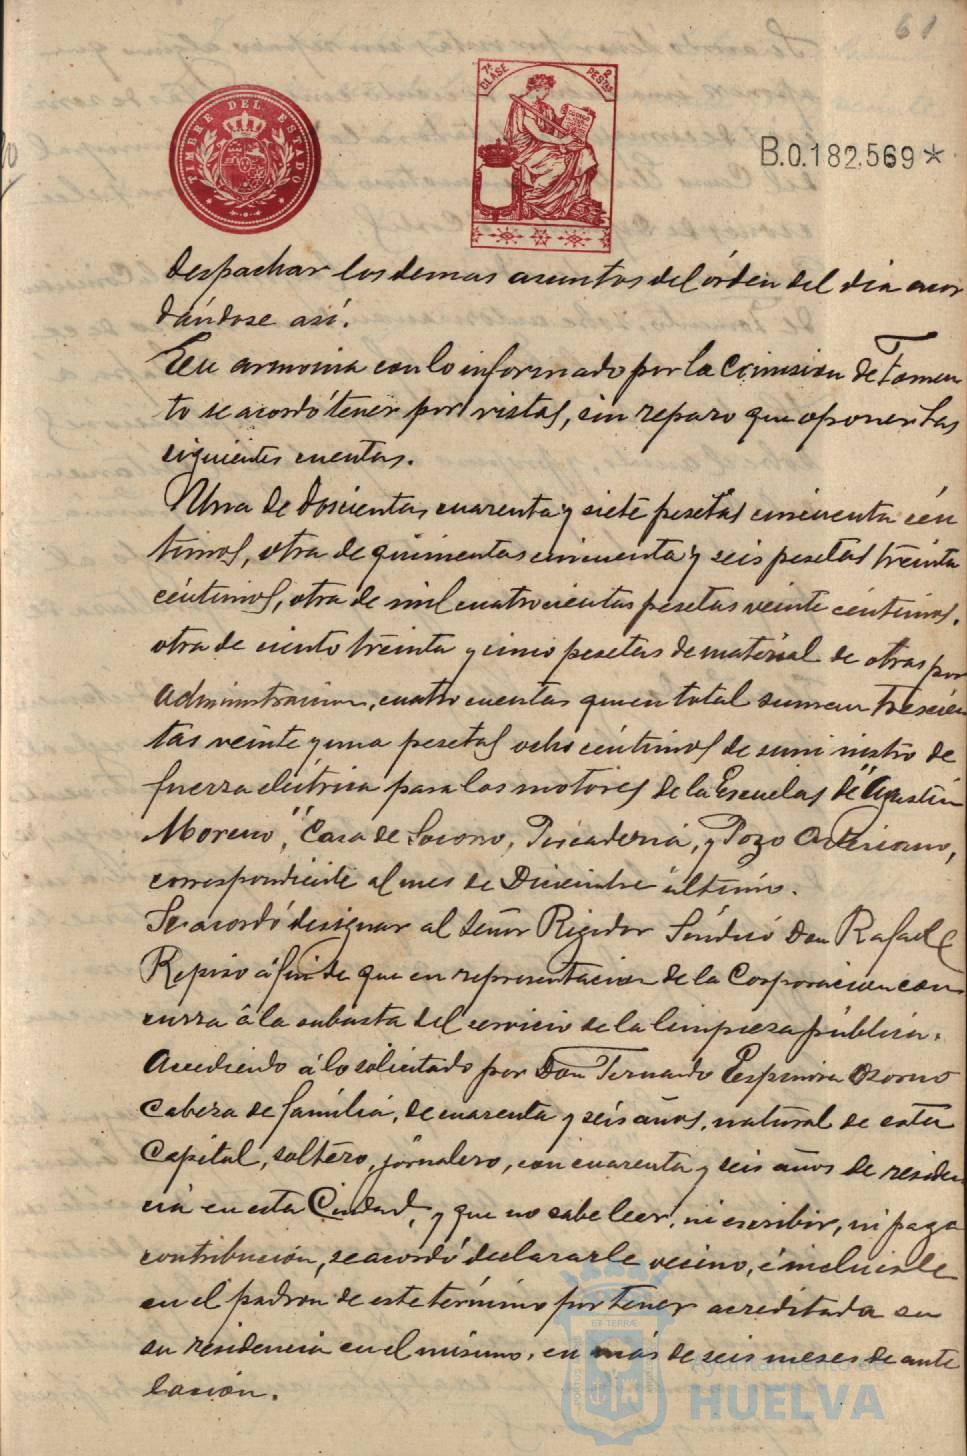 61
TIMBRE DEL ESTADO
7ª CLASE
2 PESTAS
B.0.182.569*
despachar los demas asuntos del órden del dia acor
dándose así.
En armonia con lo informado por la Comision de Fomen
to se acordó tener por vistas, sin reparo que oponer las
siguientes cuentas.
Una de doscientas cuarenta y siete pesetas cincuenta cén
timos, otra de quinientas cincuenta y seis pesetas treinta
céntimos, otra de mil cuatrocientas pesetas veinte céntimos,
otra de ciento treinta y cinco pesetas de material de otras por
administracion, cuatro cuentas que en total suman trescien
tas veinte y una pesetas ocho céntimos de suministro de
fuerza eléctrica para los motores de la Escuelas de "Agustin
Moreno", Casa de Socorro, Pescaderia, y Pozo Artesiano,
correspondiente al mes de Diciembre último.
Se acordó designar al señor Regidor Síndico Don Rafael
Repiso á fin de que en representacion de la Corporacion con
curra á la subasta del servicio de la limpieza pública.
Accediendo á lo solicitado por Don Fernando Espinosa Osorno
Cabeza de família, de cuarenta y seis años, natural de esta
Capital, soltero, jornalero, con cuarenta y seis años de residen
cia en esta Ciudad, y que no sabe leer, ni escribir, ni paga
contribucion, se acordó declararle vecino, é incluirle
en el padron de este término por tener acreditada su
su residencia en el mismo, en más de seis meses de ante
lación.
Ayuntamiento de
HUELVA